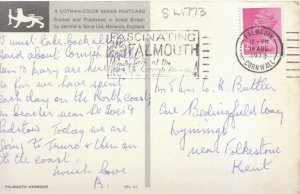 A COTMAN-COLOR SERIES POSTCARD
Printed and Published in Great Britain
by Jarrold & Sons Ltd, Norwich, England
SW1773
FASCINATING
FALMOUTH
FALMOUTH
16 AUG
1973
CORNWALL
I must take back all I
said about Cornish
Ian & Mary are here
so far we have spent
each day on the North Coast
on beaches near St Ives &
Padstow. Today we are
going to Truro & then on
to the coast.
much love
B.
Mr & Mrs W. K. Buttler
Bedingfield Way
Lyminge
near Folkestone
Kent
FALMOUTH HARBOUR